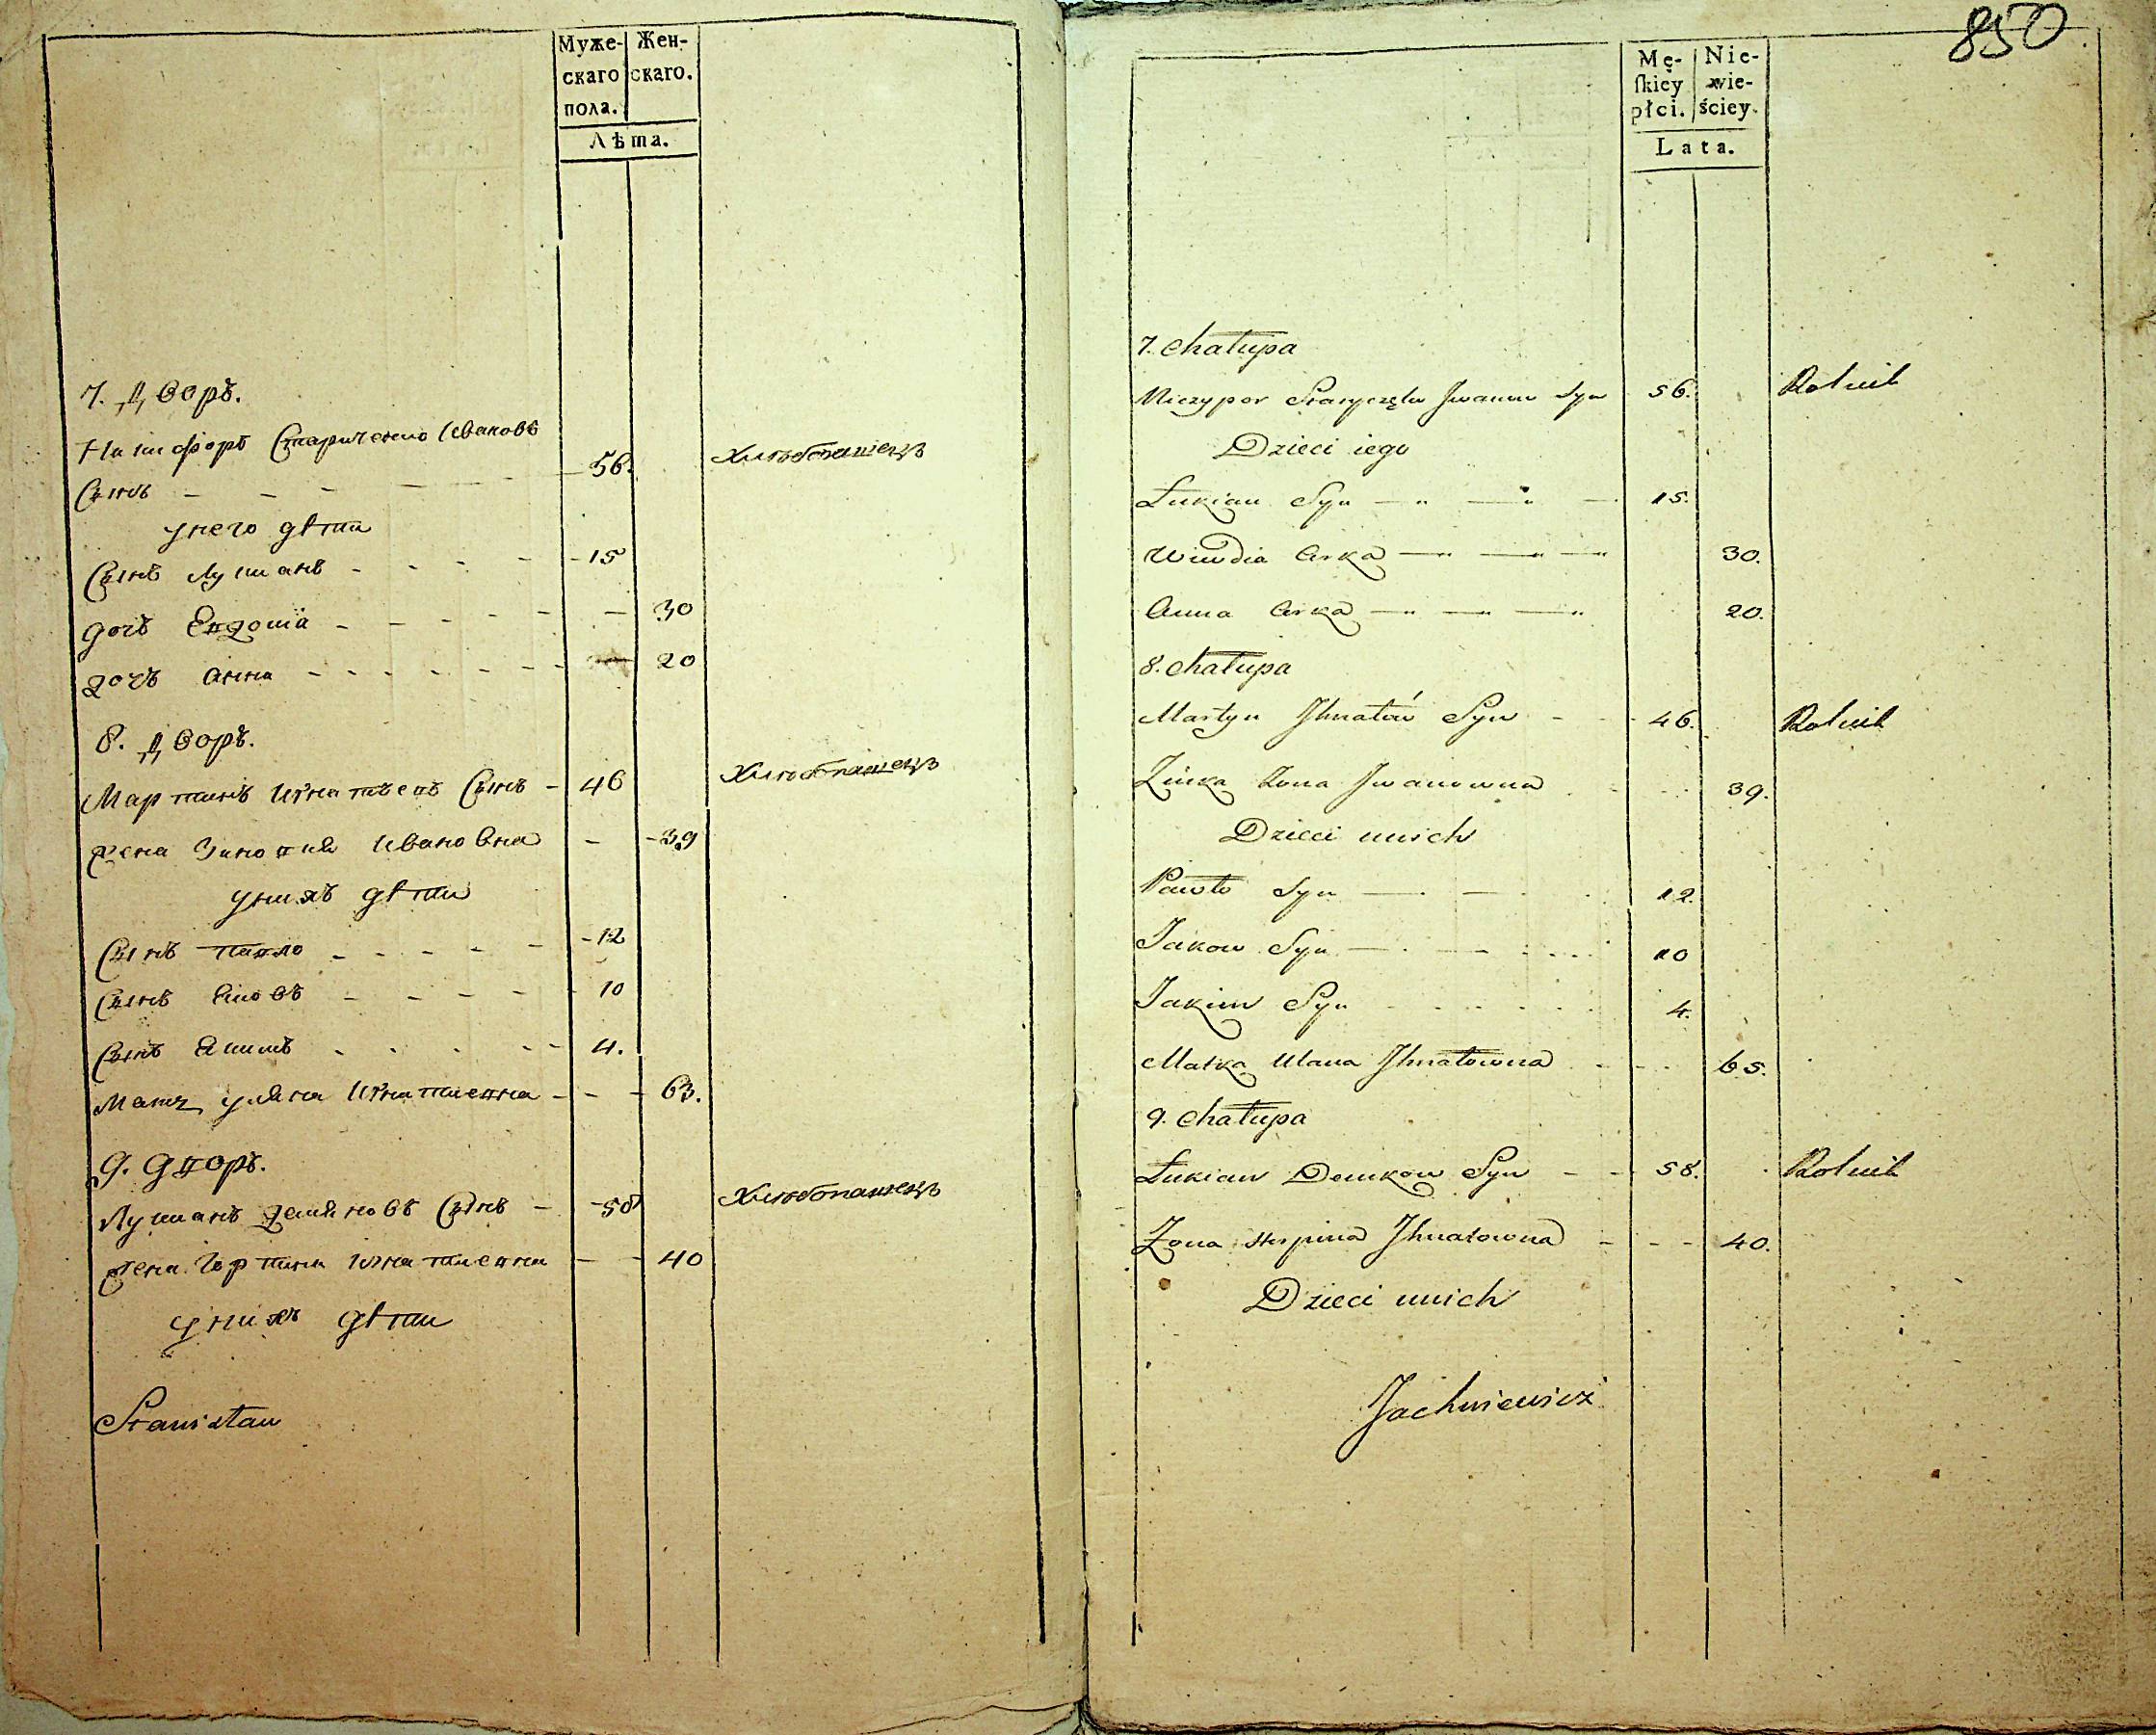 Муже- Жен-
скаго скаго.
пола.
Лѣта.
7. Дворъ.
Никифоръ Стариченко Ивановъ
Сынъ - - - - - 56. Хлѣбопашецъ
у него дѣти
Сынъ Лукіанъ - - - - 15
дочъ Евдокіа - - - - - 30
дочъ Анна - - - - - - 20
8. Дворъ.
Мартинъ Игнатьевъ Сынъ - 46 Хлѣбопашецъ
жена Зиновия Ивановна - 39
у нихъ дѣти
Сынъ Павло - - - - - 12
Сынъ Яковъ - - - - 10
Сынъ Якимъ - - - - - 4.
Мать уляна Игнатиевна - - - 63.
9. дворъ.
Лукианъ демяновъ Сынъ - 58 Хлѣбопашецъ
жена Игнатиевна - - 40
у нихъ дѣти
Stanisław
850
Mę- Nie-
ſkiey wie-
płci. ściey.
Lata.
7. Chałupa
Niczypor Staryczęko Jwanow Syn 56. Rolnik
Dzieci iego
Łukian Syn — " — " — 15.
Wiwdia Crka — " — " — " 30.
Anna Crka — " — " — " 20.
8. Chałupa
Martyn Jhnatów Syn - - - 46. Rolnik
Zińka Żona Jwanowna 39.
Dzieci unich
Pawło Syn — — 12.
Jakow Syn — — 10
Jakim Syn - - - - 4.
Matka Ulana Jhnatowna - - - 65.
9. Chałupa
Łukian Demkow Syn - - 58. Rolnik
Żona Jhnatowna - - - 40.
Dzieci unich
Jachniewicz